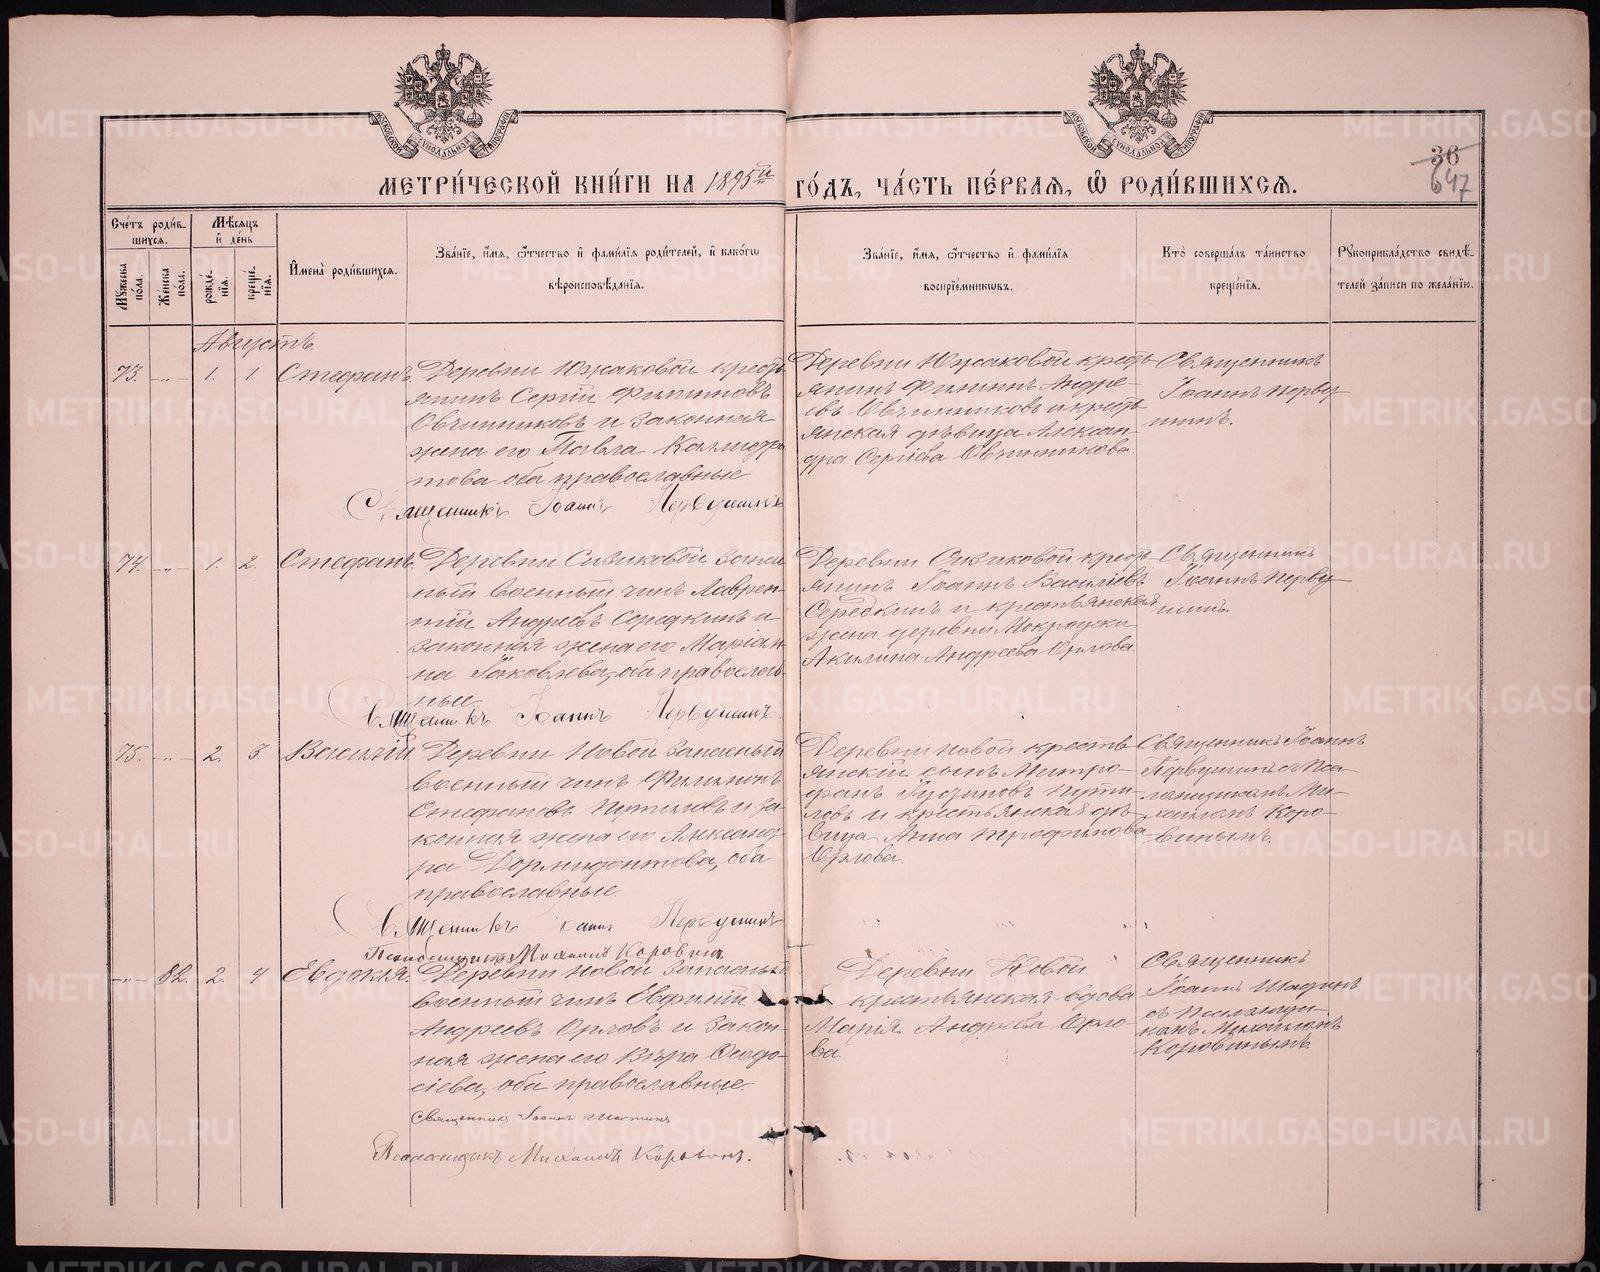 МЕТРИ́ЧЕСКОЙ КНИ́ГИ НА 1895й ГО́ДЪ, ЧА́СТЬ ПЕ́РВАЯ, Ѡ҆ РОДИ́ВШИХСЯ.
36
647
Сче́тъ роди́вшихся.
Мꙋ́жеска по́ла.
Же́нска по́ла.
Мѣ́сяцъ и҆ де́нь
рожде́нїя.
креще́нїя.
И҆мена̀ роди́вшихся.
Зва́нїе, и҆́мя, ѻ҆́тчество и҆ фами́лїя роди́телей, и҆ како́гѡ
вѣроисповѣ́данїя.
Зва́нїе, и҆́мя, ѻ҆́тчество и҆ фами́лїя
воспрїе́мниковъ.
Кто̀ соверша́лъ та́инство
креще́нїя.
Рꙋкоприкла́дство свидѣ́-
телей за́писи по жела́нїю.
Августъ.
73. -„- 1. 1. Стефанъ.
Деревни Южаковой кресть
янинъ Сергій Филиповъ
Овчинниковъ и законная
жена его Павла Каллистра
това оба православные
Священникъ Іоаннъ Первушинъ
Деревни Южаковой кресть
янинъ Филипъ Андре-
евъ Овчинниковъ и кресть
янская дѣвица Алексан
дра Сергіева Овчинникова
Священникъ
Іоаннъ Перву
шинъ.
74. -„- 1. 2. Стефанъ.
Деревни Сизиковой запас
ный военный чинъ Лаврен
тій Андреевъ Середкинъ и
законная жена его Маріан
на Іаковлева, оба православ
ные
Священникъ Іоаннъ Первушинъ
Деревни Сизиковой кресть
янинъ Іоаннъ Василіевъ
Середкинъ и крестьянская
жена деревни Мокроуски
Акилина Андреева Орлова
Священникъ
Іоаннъ Перву-
шинъ.
75. -„- 2. 3. Василій
Деревни Новой запасный
военный чинъ Филимонъ
Стефановъ Путиловъ и за
конная жена его Александ
ра Дормидонтова, оба
православные.
Священникъ Іоаннъ Первушинъ
Псаломщикъ Михаилъ Коровинъ
Деревни Новой кресть
янскій сынъ Митро-
фанъ Іустиновъ Пути-
ловъ и крестьянская дѣ-
вица Анна Трофимова
Орлова.
Священникъ Іоаннъ
Первушинъ съ Пса-
ломщикомъ Ми-
хаиломъ Коро-
винымъ.
-„- 82. 2. 4 Евдокія.
Деревни Новой запасный
военный чинъ Евфимій
Андреевъ Орловъ и закон-
ная жена его Вѣра Ѳеодо-
сіева, оба православные.
Священникъ Іоаннъ Шастинъ
Псаломщикъ Михаилъ Коровинъ.
Деревни Новой
крестьянская вдова
Марія Андреева Орло-
ва
Священникъ
Іоаннъ Шастинъ
съ Псаломщи-
комъ Михаиломъ
Коровинымъ.
METRIKI.GASO-URAL.RU